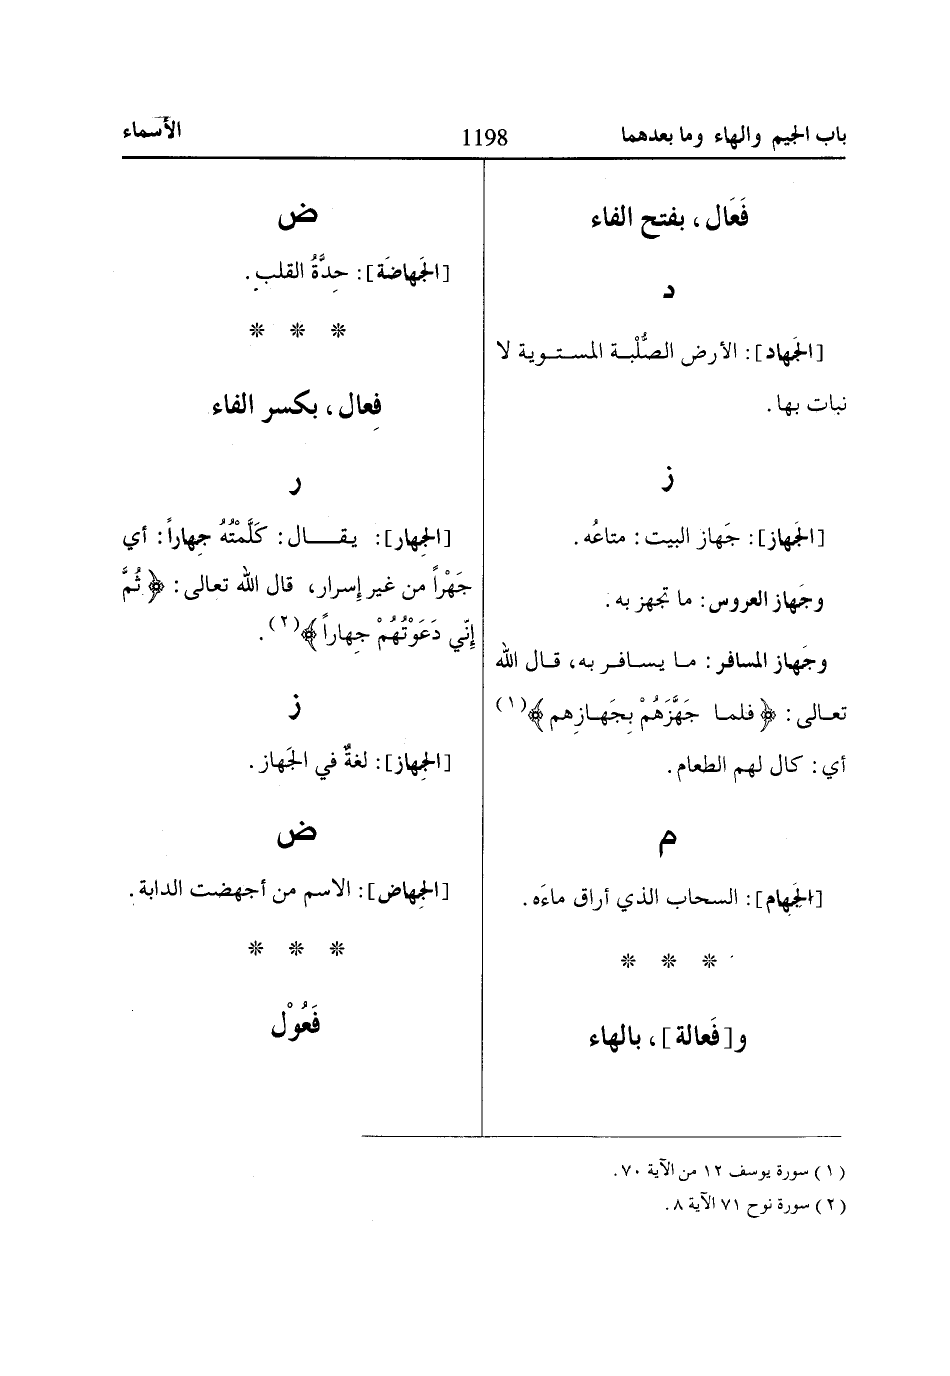 باب الجيم والهاء وما بعدهما
1198
الأسماء
فَعَال، بفتح الفاء
د
[الجَهاد]: الأرض الصُّلْبة المستوية لا
نبات بها.
ز
[الجَهاز]: جَهاز البيت: متاعُه.
وجَهاز العروس: ما تجهز به.
وجَهاز المسافر: ما يسافر به، قال الله
تعالى: ﴿فلما جَهَّزَهُمْ بِجَهازِهم﴾(١)
أي: كال لهم الطعام.
م
[الجَهام]: السحاب الذي أراق ماءَه.
* * *
و[فَعالة]، بالهاء
ض
[الجَهاضَة]: حِدَّةُ القلبِ.
* * *
فِعال، بكسر الفاء
ر
[الجِهار]: يقال: كَلَّمْتُهُ جِهاراً: أي
جَهْراً من غير إسرار، قال الله تعالى: ﴿ثُمَّ
إِنّي دَعَوْتُهُمْ جِهاراً﴾(٢).
ز
[الجِهاز]: لغةٌ في الجَهاز.
ض
[الجِهاض]: الاسم من أجهضت الدابة.
* * *
فَعُوْل
(١) سورة يوسف ١٢ من الآية ٧٠.
(٢) سورة نوح ٧١ الآية ٨.